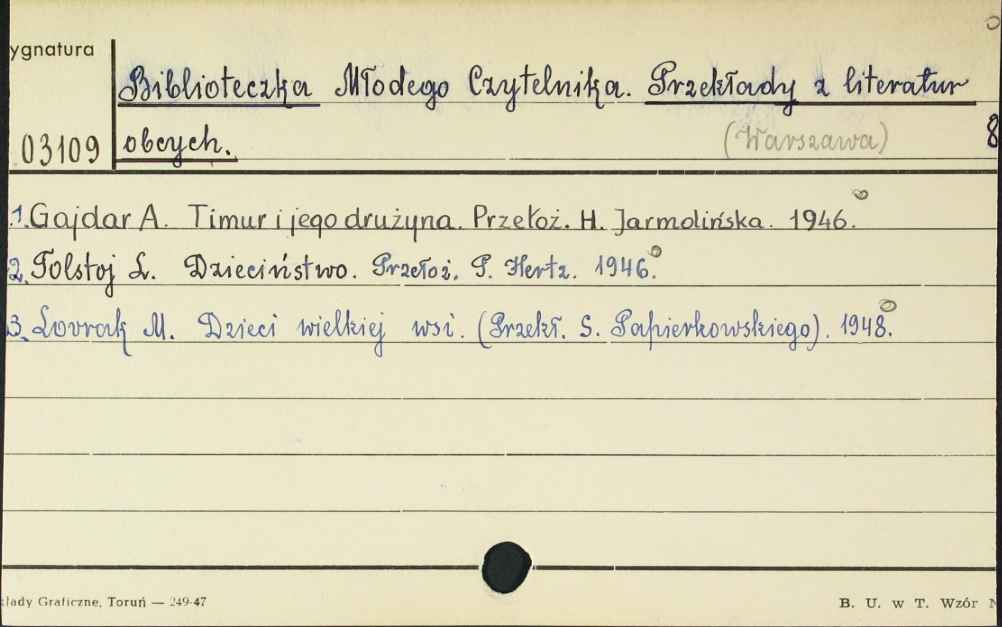 ygnatura
Biblioteczka Młodego Czytelnika. Przekłady z literatur
03109 obcych. (Warszawa) 8
1. Gajdar A. Timur i jego drużyna. Przełoż. H. Jarmolińska. 1946.
2. Tolstoj L. Dzieciństwo. Przełoż. P. Hertz. 1946.
3. Lovrak M. Dzieci wielkiej wsi. (Przekł. S. Papierkowskiego). 1948.
łady Graficzne, Toruń — 249-47 B. U. w T. Wzór N